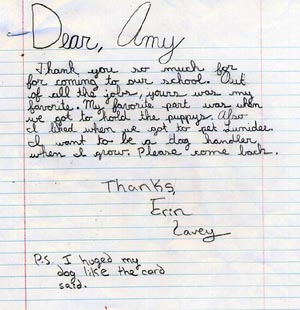 Dear, Amy
Thank you so much for
for coming to our school. Out
of all the jobs, yours was my
favorite. My favorite part was when
we got to hold the puppys. Also
I liked when we got to pet Lumidee
I want to be a dog handler
when I grow. Please come back.
Thanks,
Erin
Zavey
P.S. I huged my
dog like the card
said.